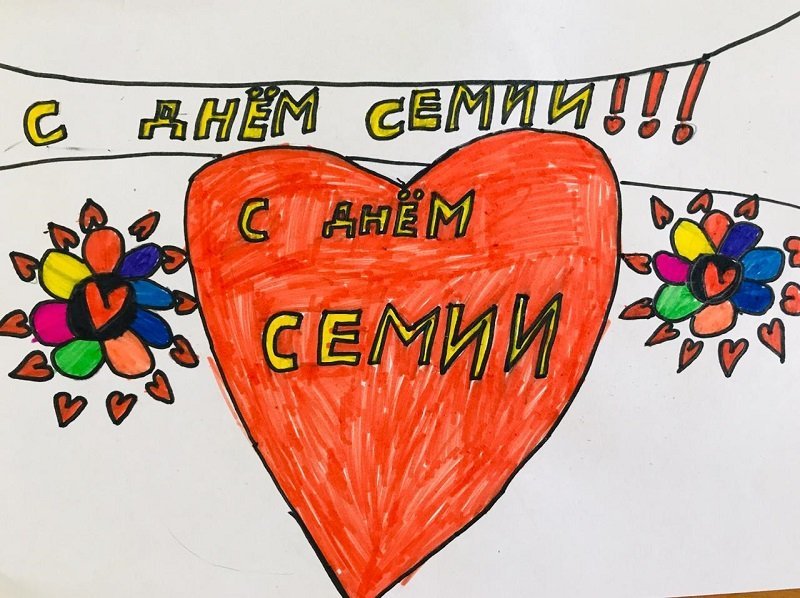 С ДНЁМ СЕМИИ!!!
С ДНЁМ
СЕМИИ